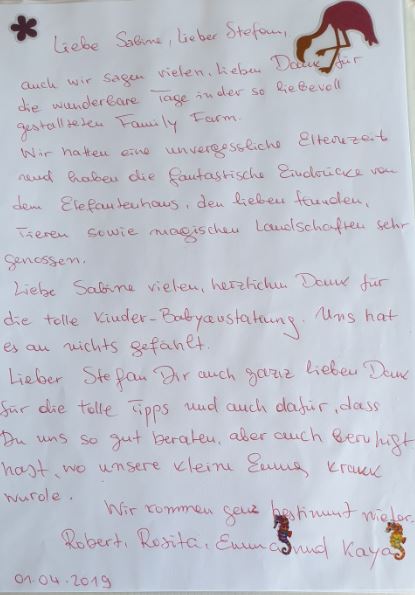 Liebe Sabine, Lieber Stefan,
auch wir sagen vielen, lieben Dank für
die wunderbare Tage in der so liebevoll
gestallteten Family Farm.
Wir hatten eine unvergessliche Elternzeit
und haben die fantastische Eindrücke von
dem Elefantenhaus, den lieben Hunden,
Tieren sowie magischen Landschaften sehr
genossen.
Liebe Sabine vielen, herzlichen Dank für
die tolle Kinder-Babyaustatung. Uns hat
es an nichts gefählt.
Lieber Stefan Dir auch ganz lieben Dank
für die tolle Tipps und auch dafür, dass
Du uns so gut beraten, aber auch beruhigt
hast, wo unsere kleine Emma krank
wurde.
Wir kommen ganz bestimmt wieder.
Robert, Rosita, Emma und Kaya
01.04.2019